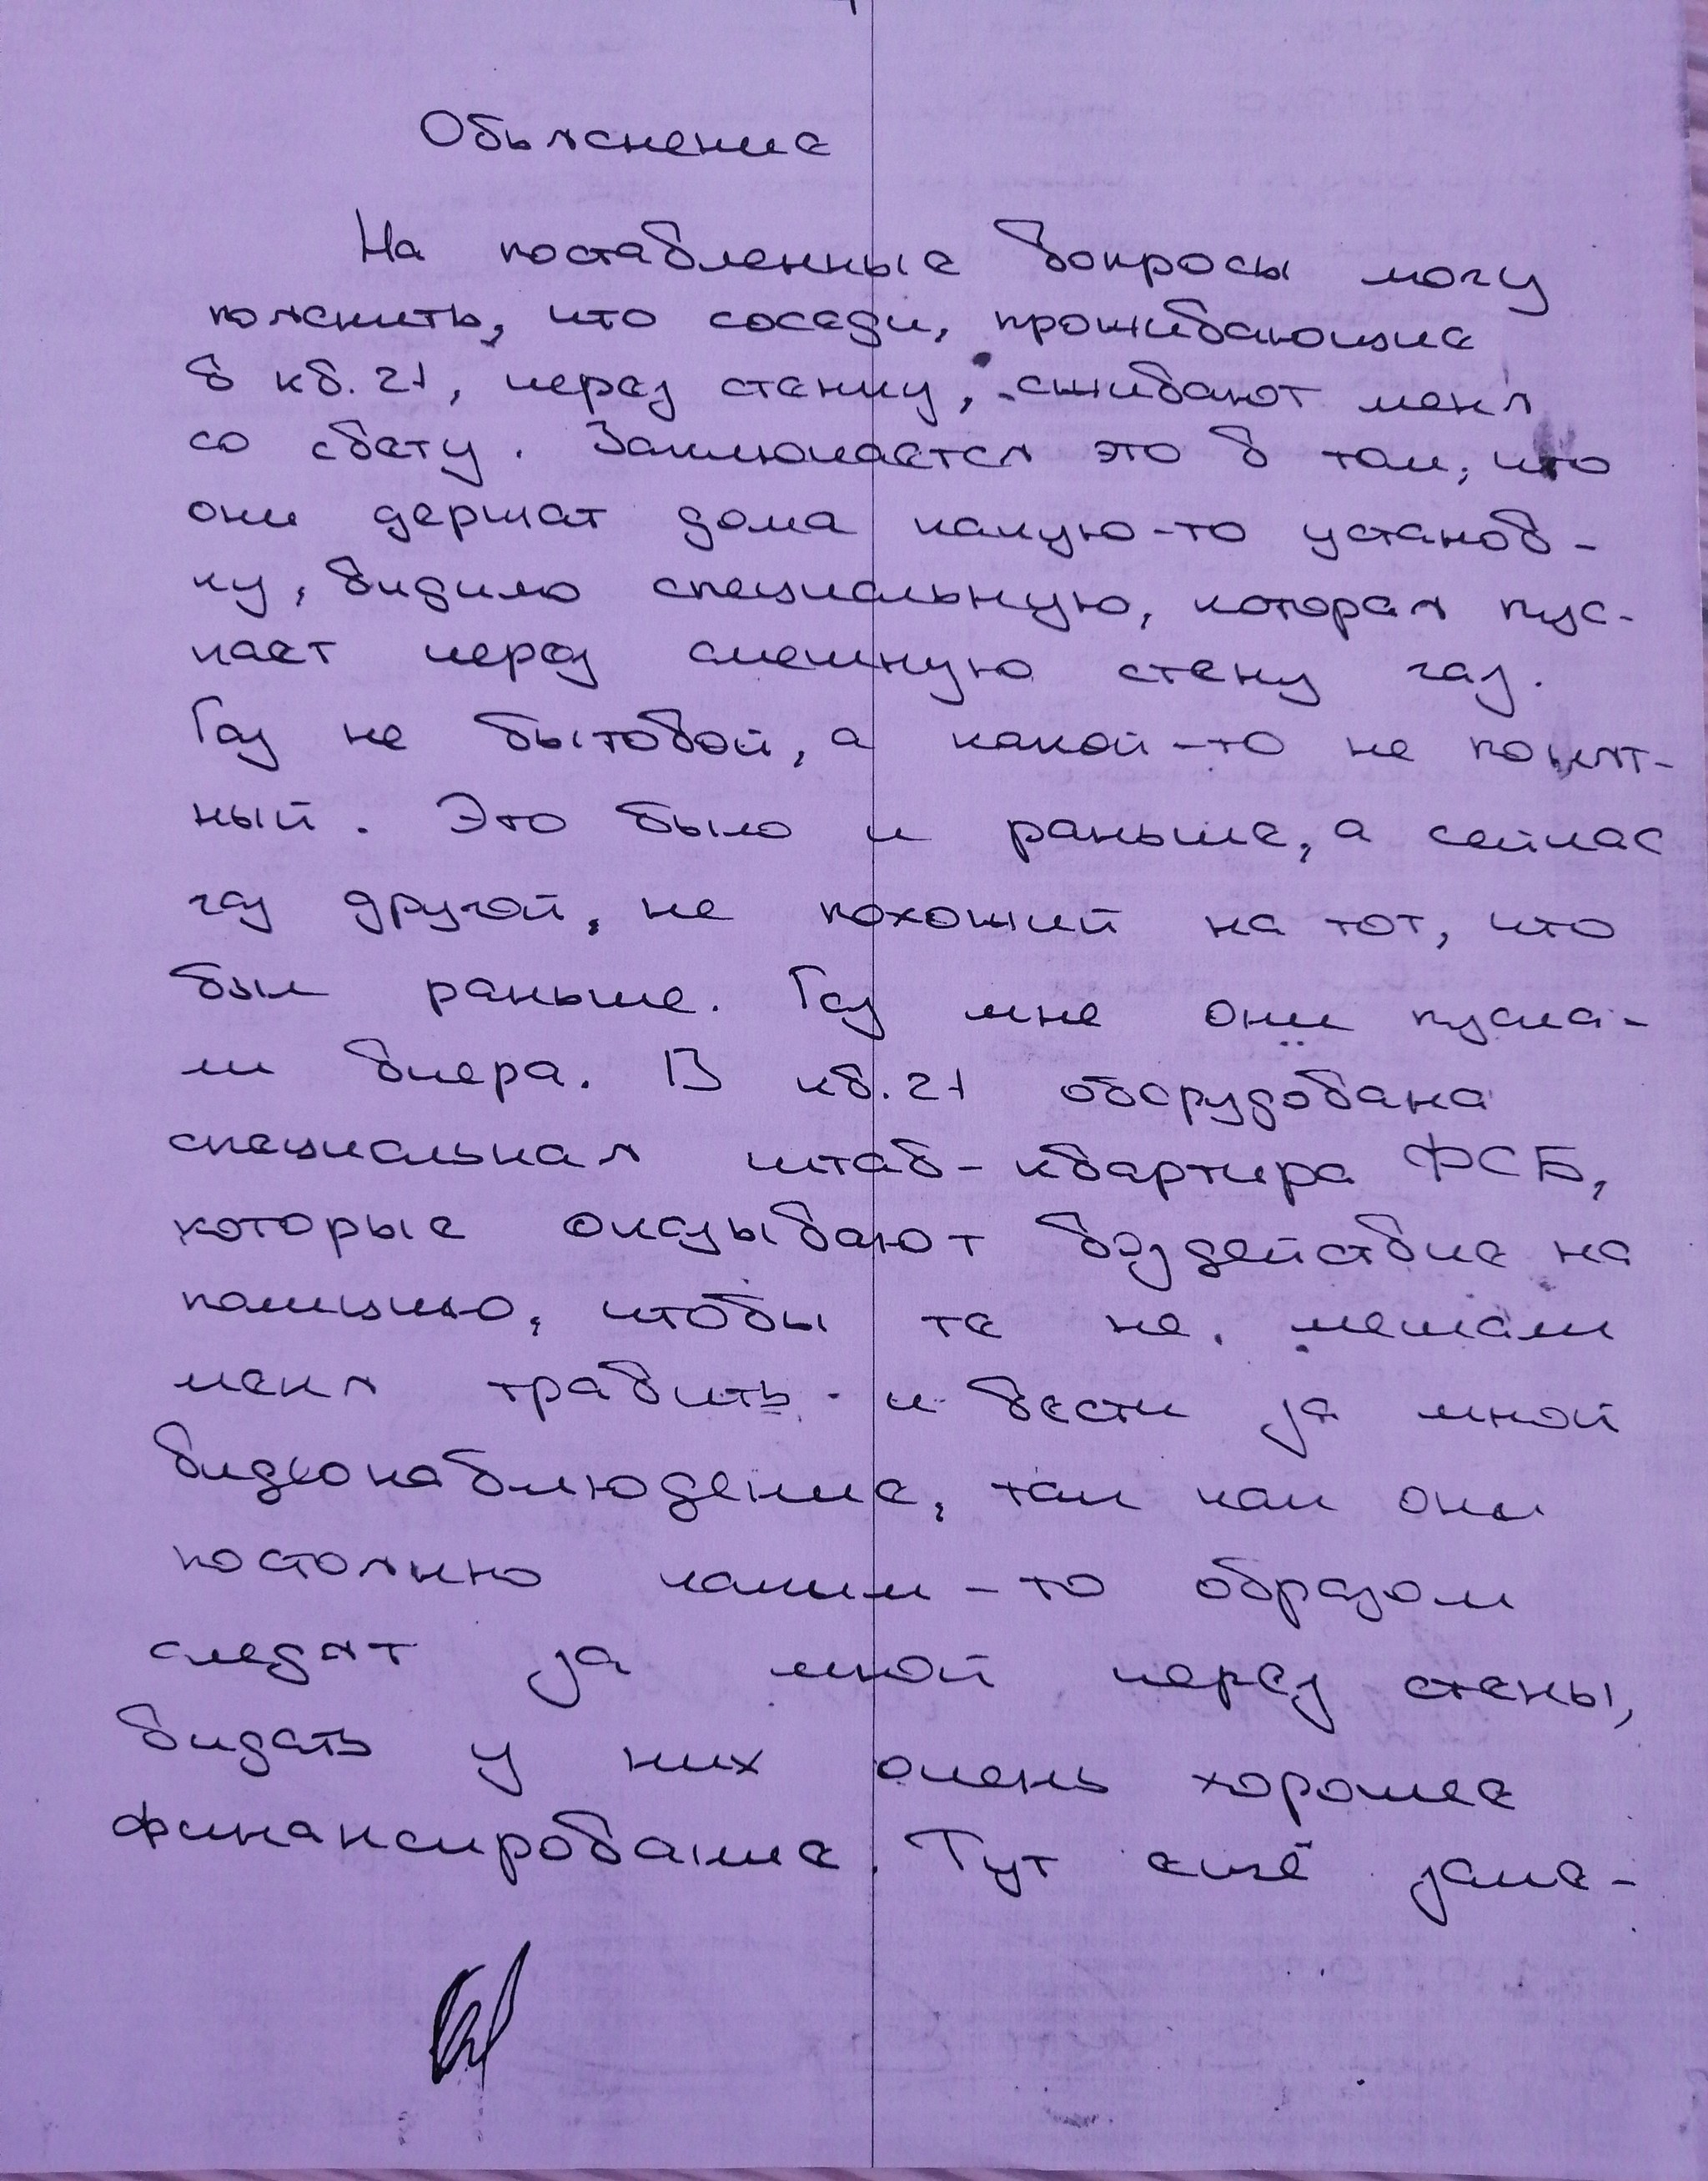 Обьяснение
На поставленные вопросы могу
пояснить, что соседи, проживающие
в кв. 21, через стенку, сживают меня
со свету. Заключается это в том, что
они держат дома какую-то установ-
ку, видимо специальную, которая пус-
кает через смежную стену газ.
Газ не бытовой, а какой-то не понят-
ный. Это было и раньше, а сейчас
газ другой, не похожий на тот, что
был раньше. Газ мне они пуска-
ли вчера. В кв. 21 оборудована
специальная штаб-квартира ФСБ,
которые оказывают воздействие на
полицию, чтобы те не мешали
меня травить и вести за мной
видеонаблюдение, так как они
постоянно каким-то образом
следят за мной через стены,
видать у них очень хорошее
финансирование. Тут ещё заме-